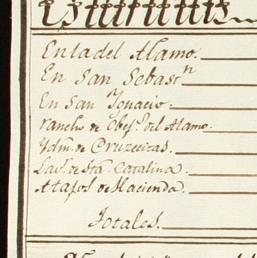 En la del Alamo.
En San Sebastn
En San Ygnacio.
rancho de Obejs. del Alamo.
Ydm. de Cruzecitas.
de Sta. Catalina.
Atajos de Hacienda.
Totales.